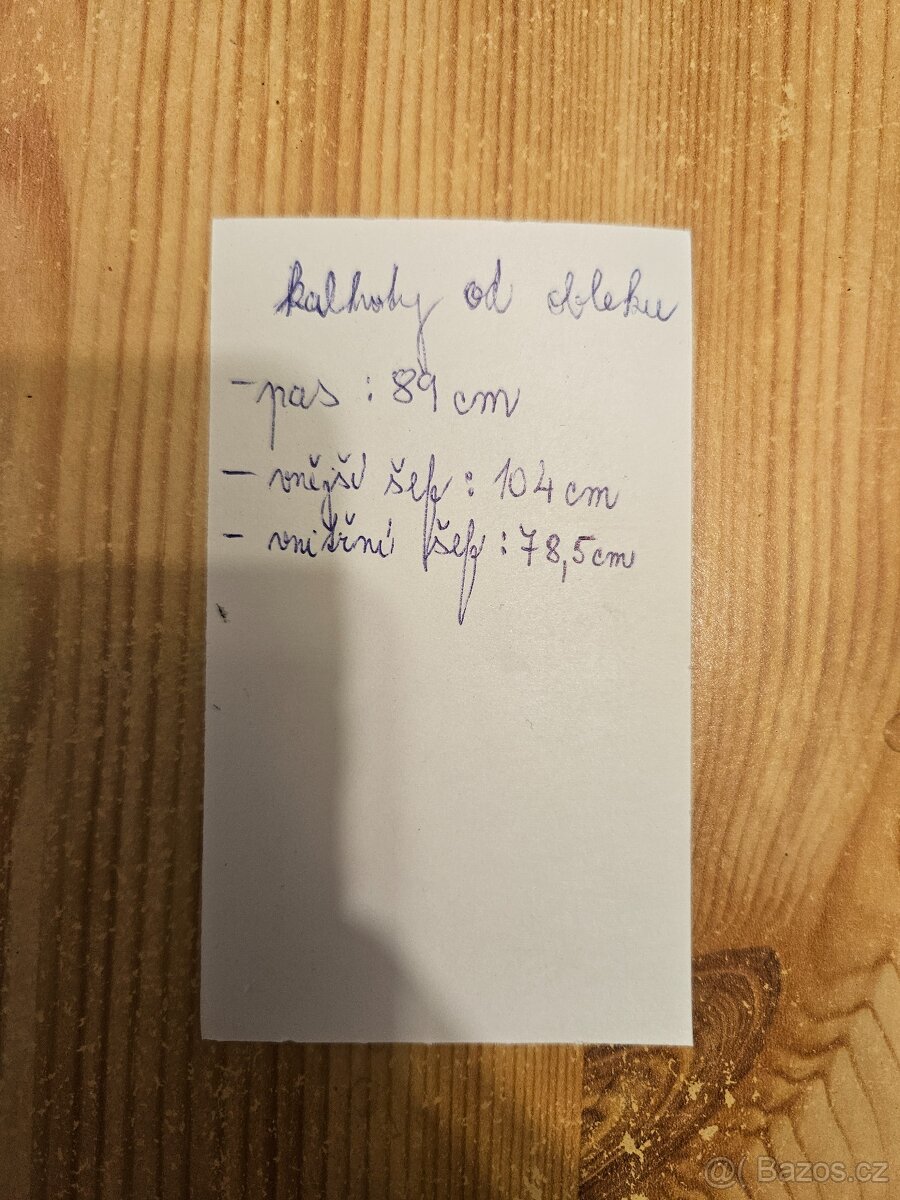 kalhoty od obleku
- pas : 89 cm
- vnější šep : 104 cm
- vnitřní šep : 78,5 cm
@( Bazos.cz